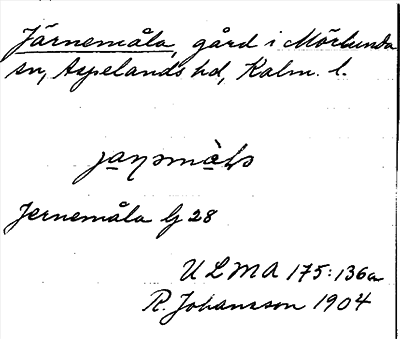 Järnemåla, gård i Mörlunda
sn, Aspelands hd, Kalm. l.
Jernemåla Lj 28
ULMA 175:136a
R. Johansson 1904